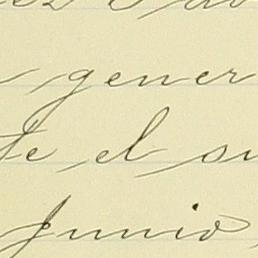 y gener
te el su
Junio